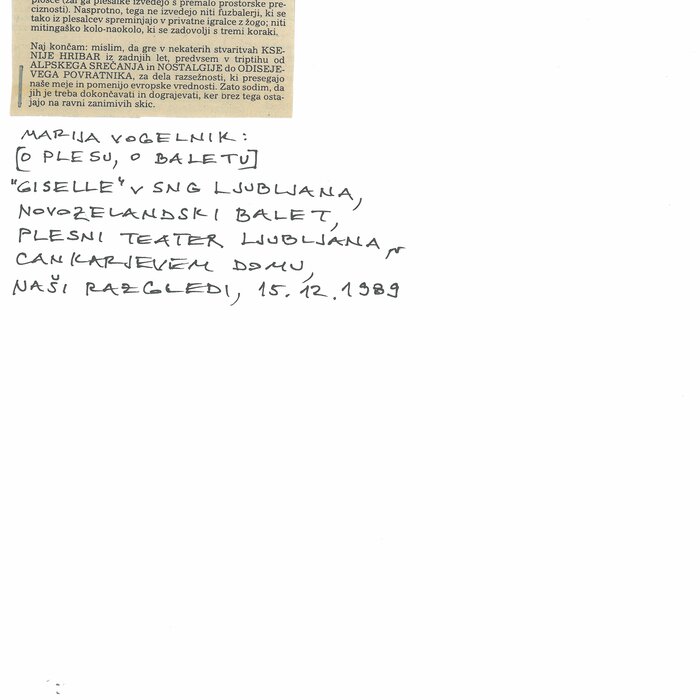 plošče (žal ga plesalke izvedejo s premalo prostorske pre-
ciznosti). Nasprotno, tega ne izvedejo niti fuzbalerji, ki se
tako iz plesalcev spreminjajo v privatne igralce z žogo; niti
mitingaško kolo-naokolo, ki se zadovolji s tremi koraki.
Naj končam: mislim, da gre v nekaterih stvaritvah KSE-
NIJE HRIBAR iz zadnjih let, predvsem v triptihu od
ALPSKEGA SREČANJA in NOSTALGIJE do ODISEJE-
VEGA POVRATNIKA, za dela razsežnosti, ki presegajo
naše meje in pomenijo evropske vrednosti. Zato sodim, da
jih je treba dokončavati in dograjevati, ker brez tega osta-
jajo na ravni zanimivih skic.
MARIJA VOGELNIK:
[O PLESU, O BALETU]
"GISELLE" v SNG LJUBLJANA,
NOVOZELANDSKI BALET,
PLESNI TEATER LJUBLJANA v
CANKARJEVEM DOMU,
NAŠI RAZGLEDI, 15.12.1989